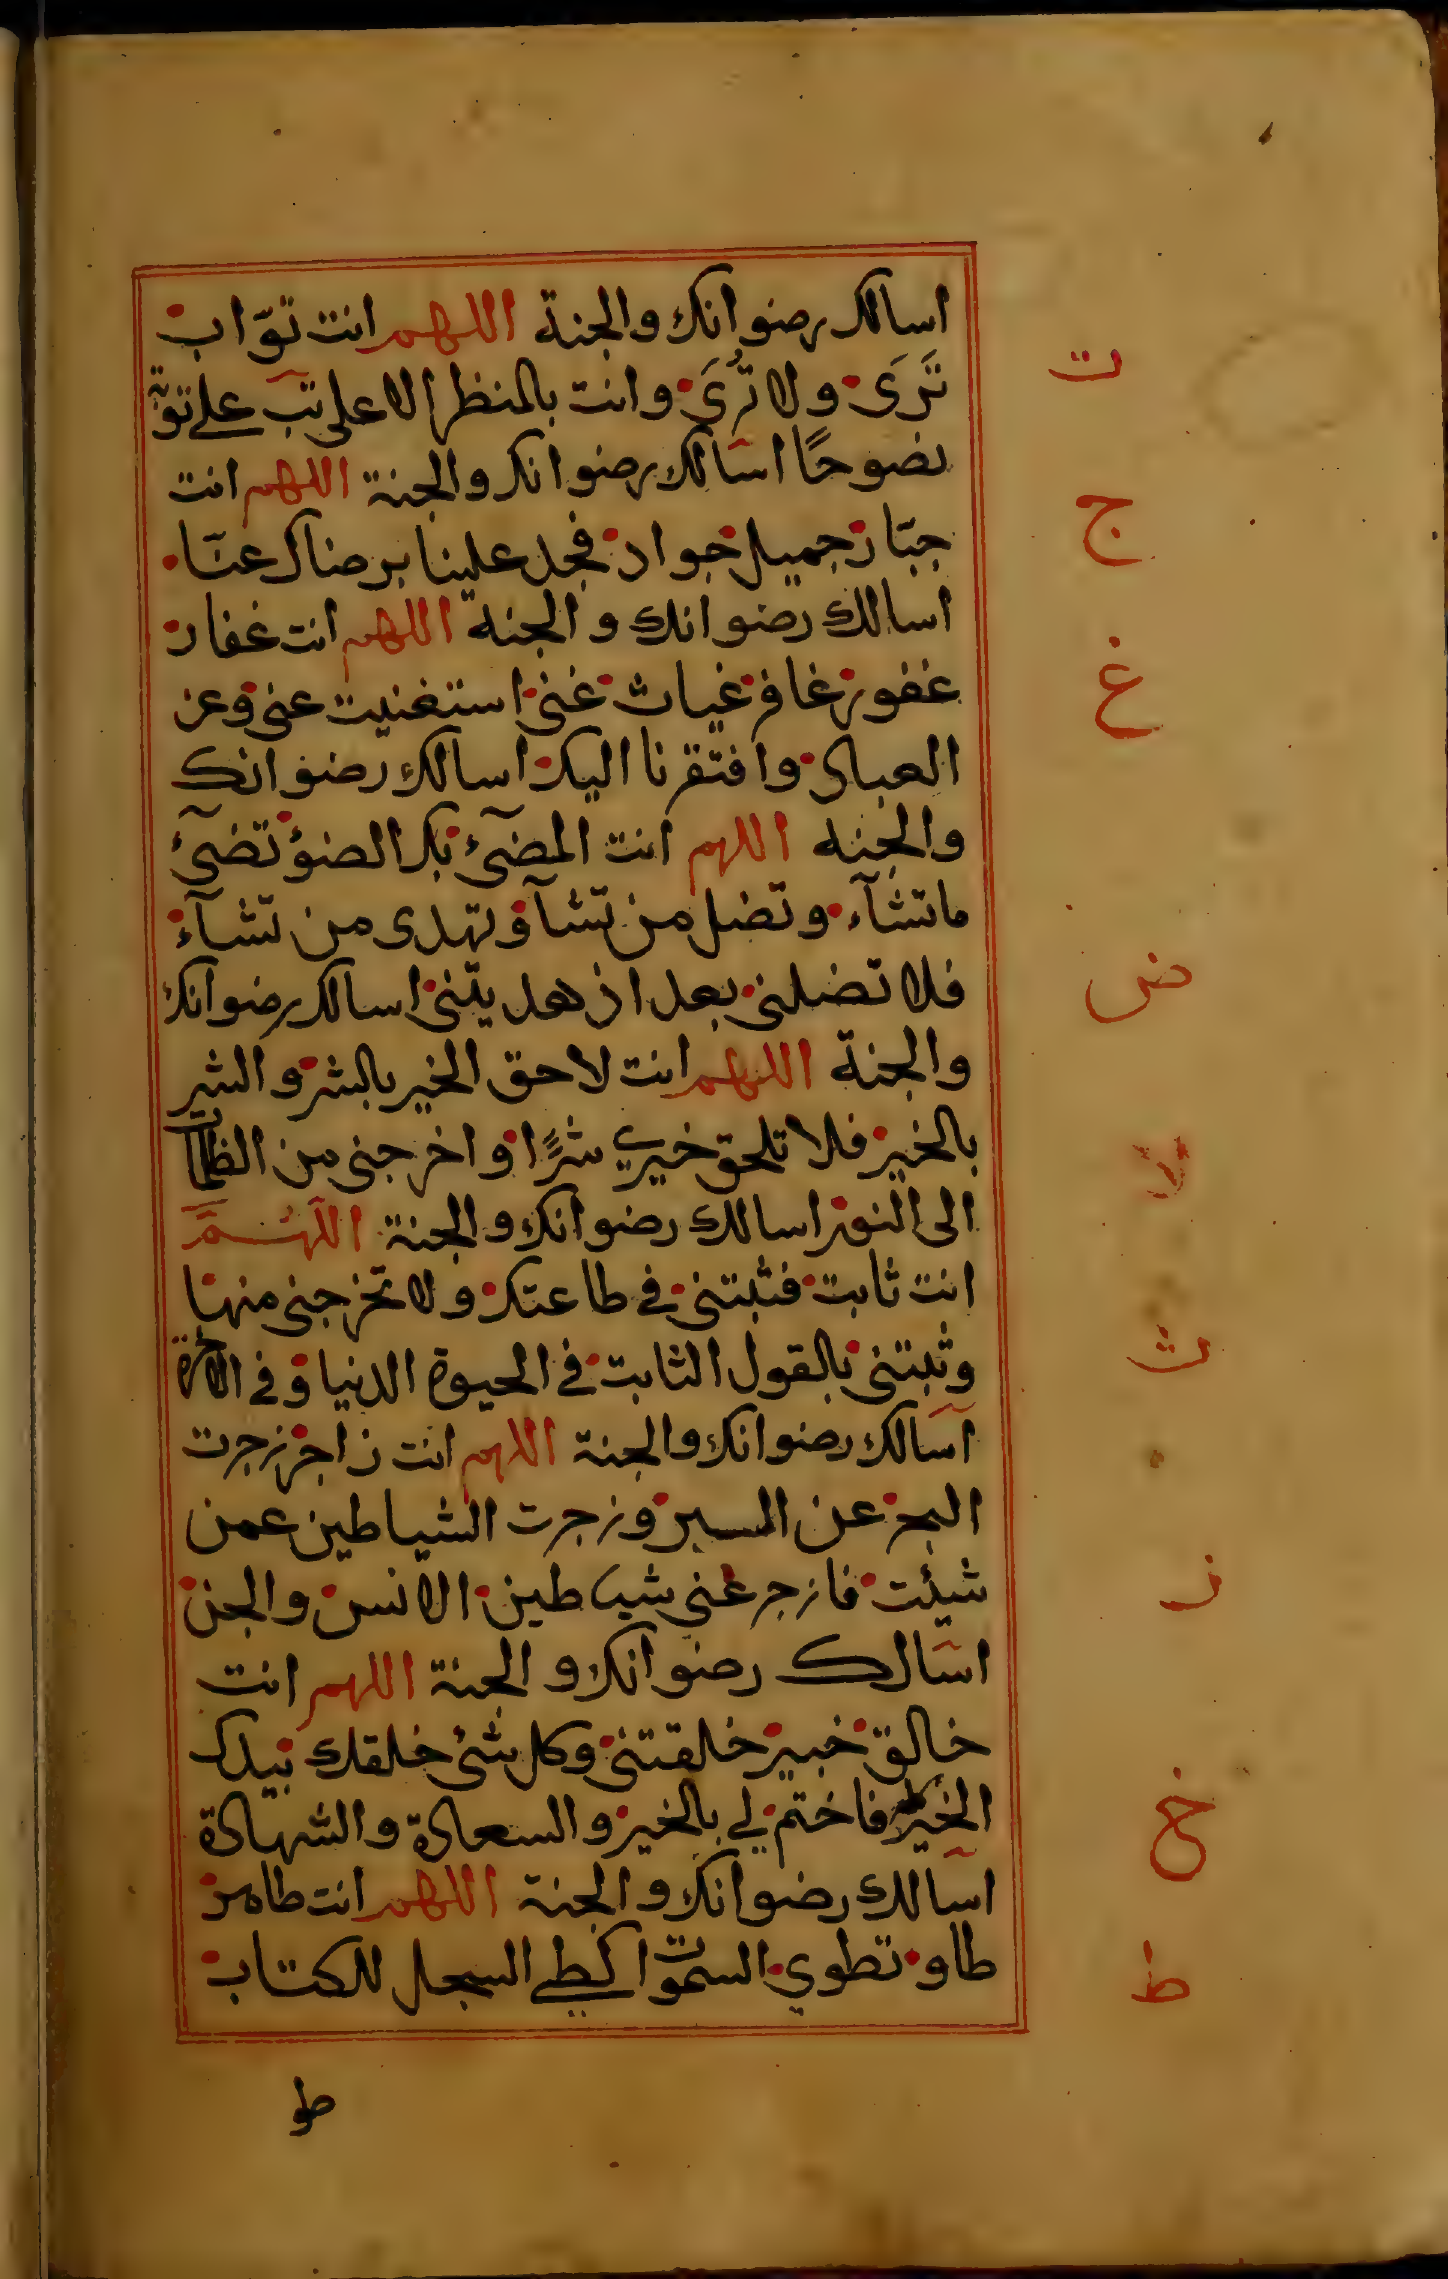 اسالك رضوانك والجنة اللهم انت توّاب
ت
تَرَى ولا تُرَى وانت بالمنظر الاعلى تب علي توبة
نصوحًا اسالك رضوانك والجنة اللهم انت
ج
جبّار جميل جواد فجد علينا برضاك عنّا
اسالك رضوانك والجنة اللهم انت غفار
غ
غفور غافر غياث غنى استغنيت عنى وعن
العباد وافتقرنا اليك اسالك رضوانك
والجنه اللهم انت المضىء بك الضوء تضىء
ما تشآء وتضل من تشآ وتهدى من تشآء
ض
فلا تضلنى بعد اذ هديتنى اسالك رضوانك
والجنة اللهم انت لاحق الخير بالشر والشر
بالخير فلا تلحق خيري شرًا واخرجنى من الظلمات
لا
الى النور اسالك رضوانك والجنة اللّهُمَّ
انت ثابت فثبتنى فى طاعتك ولا تخرجنى منها
ث
وثبتنى بالقول الثابت فى الحيوة الدنيا وفى الاخرة
اسالك رضوانك والجنة اللهم انت زاجر زجرت
البحر عن السير وزجرت الشياطين عمن
ز
شيئت فازجر عنى شياطين الانس والجن
اسالك رضوانك والجنة اللهم انت
خالق خبير خلقتنى وكل شىء خلقك بيدك
خ
الخير فاختم لي بالخير والسعادة والشهادة
اسالك رضوانك والجنة اللهم انت طاهر
ط
طاو تطوي السموات كطي السجل للكتاب
طو